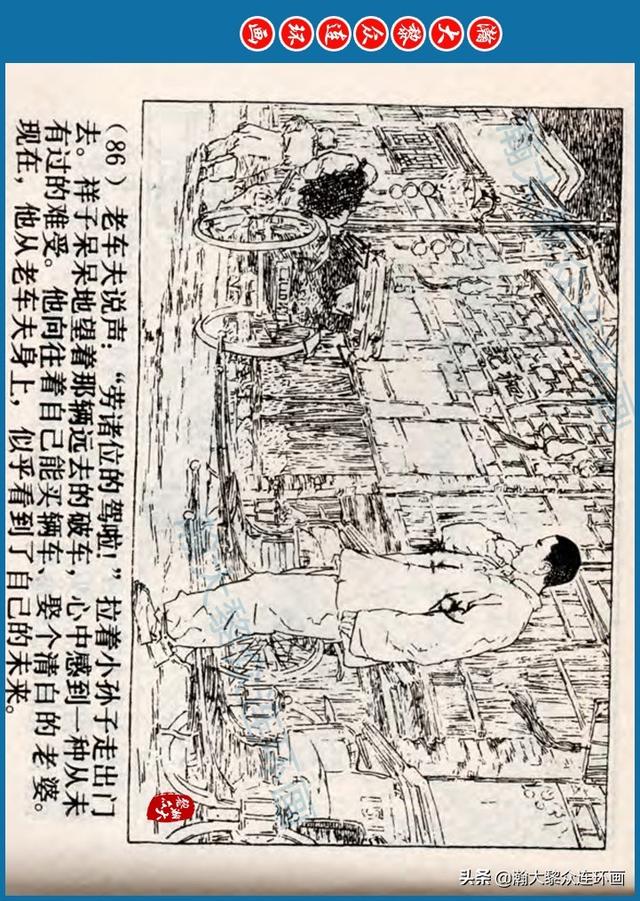 瀚大黎众连环画
(86) 老车夫说声：“劳诸位的驾啦！”拉着小孙子走出门
去。祥子呆呆地望着那辆远去的破车，心中感到一种从未
有过的难受。他向往着自己能买辆车，娶个清白的老婆。
现在，他从老车夫身上，似乎看到了自己的未来。
瀚大黎众连环画
瀚大黎众连环画
瀚大黎众
头条 @瀚大黎众连环画